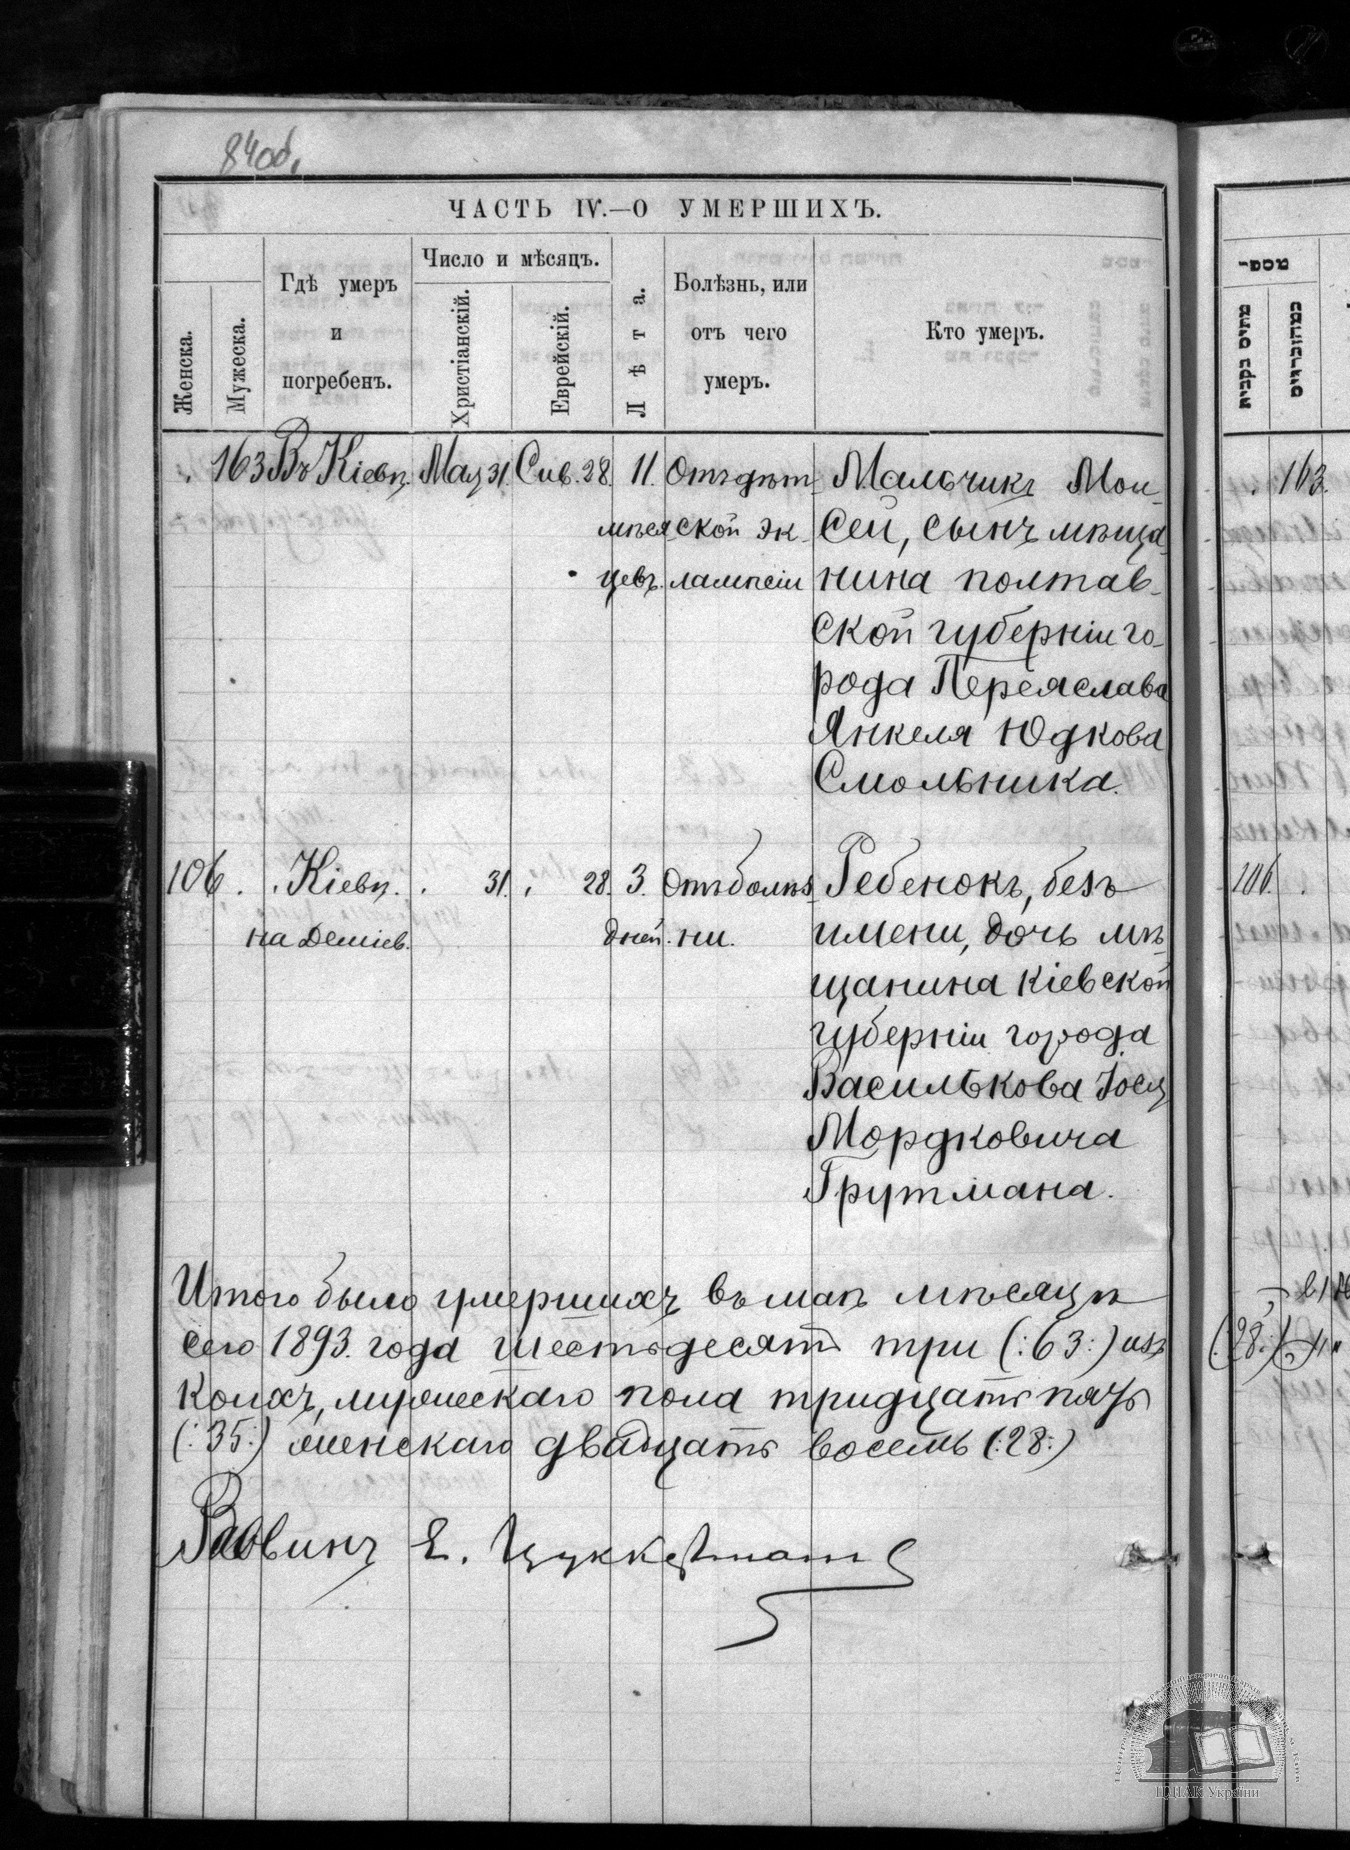 84об.
ЧАСТЬ IV.—О УМЕРШИХЪ.
Женска.
Мужеска.
Гдѣ умеръ
и
погребенъ.
Число и мѣсяцъ.
Христіанскій.
Еврейскій.
Лѣта.
Болѣзнь, или
отъ чего
умеръ.
Кто умеръ.
163 Въ Кіевѣ. Мая 31. Сив. 28. 11. Отъ дѣт- Мальчикъ Мои-
мѣся- ской эк- сей, сынъ мѣща-
цевъ. лампсіи нина полтав-
ской губерніи го-
рода Переяслава
Янкеля Юдкова
Смольника.
106. Кіевѣ. 31. 28. 3. Отъ болѣз- Ребенокъ, безъ
на Деміев. дней. ни. имени, дочь мѣ-
щанина Кіевской
губерніи города
Василькова Іося
Мордковича
Грутмана.
Итого было умершихъ въ маѣ мѣсяцѣ
сего 1893. года шестьдесятъ три (:63:) изъ
коихъ, мужескаго пола тридцать пять
(:35:) женскаго двадцать восемь (:28:)
Раввинъ Е. Цуккерманъ
163.
106.
(:28:)
ЦДІАК України